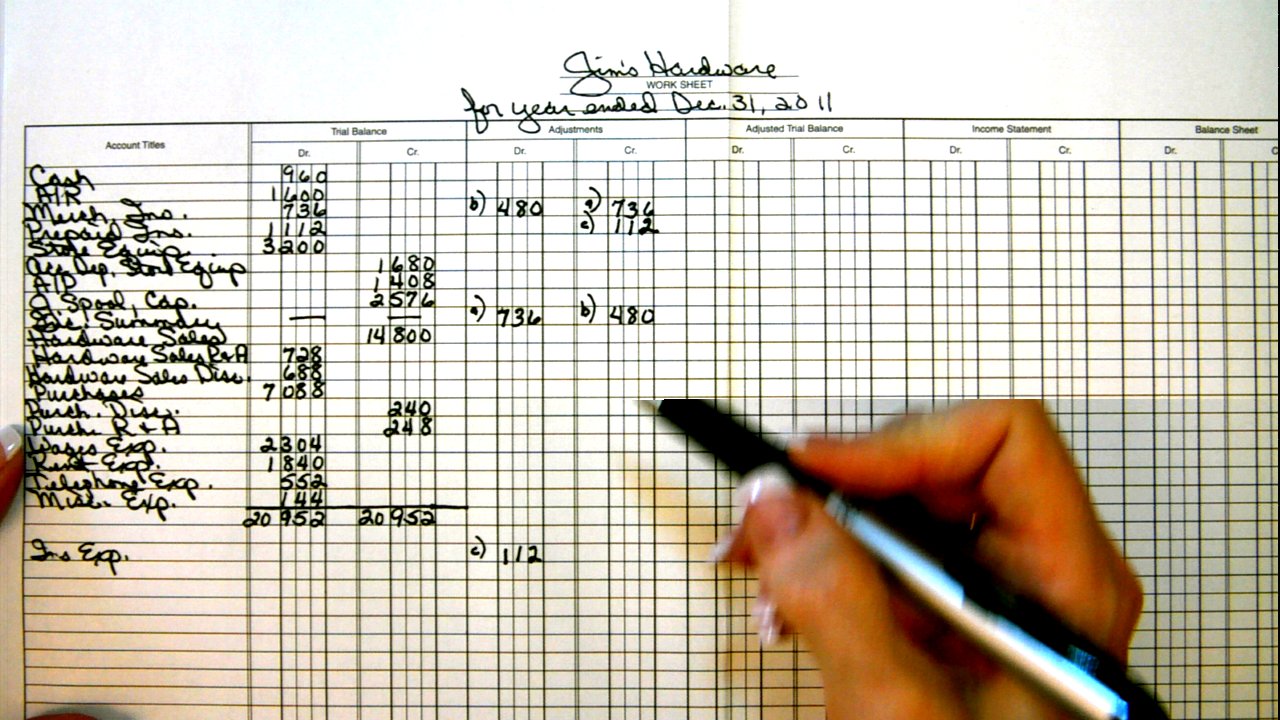 Jim's Hardware
WORK SHEET
for year ended Dec. 31, 2011
Account Titles Trial Balance Adjustments Adjusted Trial Balance Income Statement Balance Sheet
Dr. Cr. Dr. Cr. Dr. Cr. Dr. Cr. Dr. C
Cash 960
A/R 1600
Merch. Inv. 736 b) 480 a) 736
Prepaid Ins. 1112 c) 112
Store Equip. 3200
Acc Dep, Store Equip 1680
A/P 1408
J. Spool, Cap. 2576
Inc. Summary — — a) 736 b) 480
Hardware Sales 14800
Hardware Sales R+A 728
Hardware Sales Disc. 688
Purchases 7088
Purch. Disc. 240
Purch. R + A 248
Wages Exp. 2304
Rent Exp. 1840
Telephone Exp. 552
Misc. Exp. 144
20952 20952
Ins Exp. c) 112